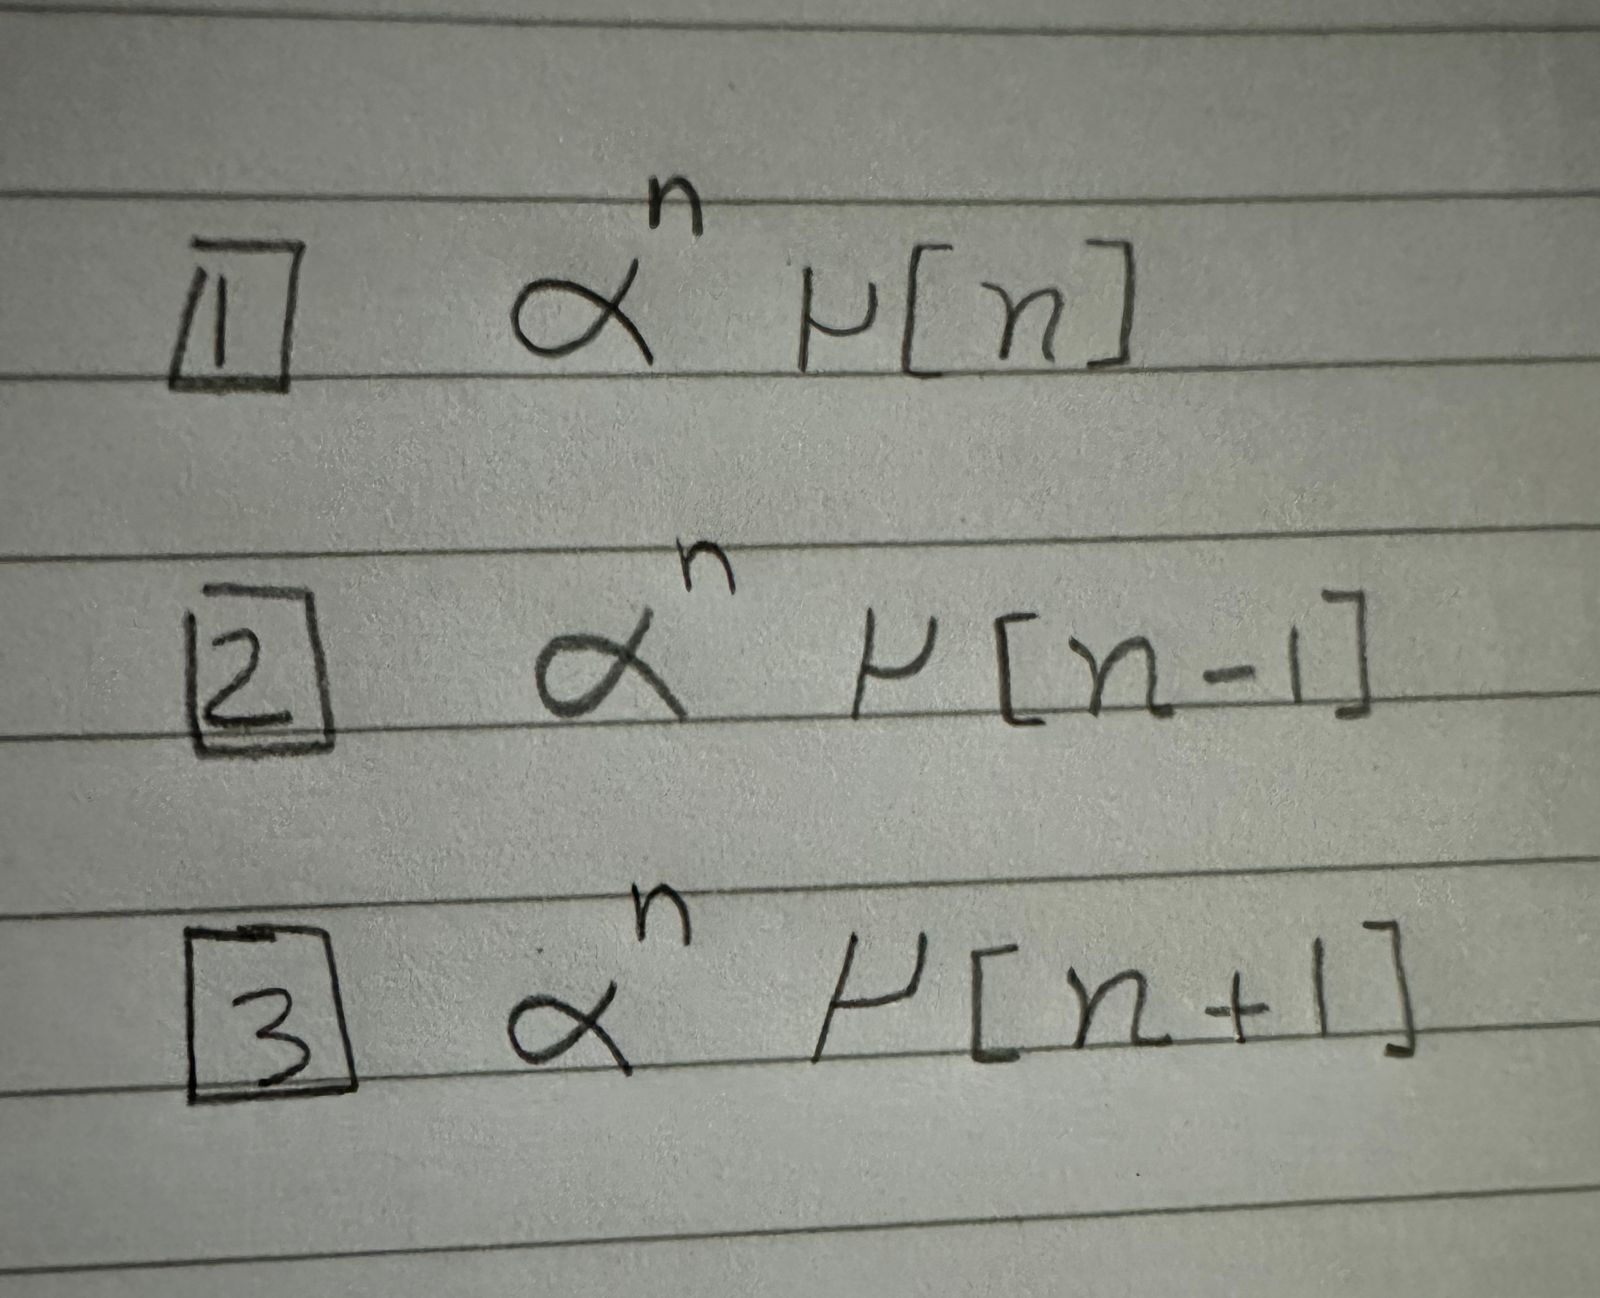 1 αⁿ μ[n]
2 αⁿ μ[n-1]
3 αⁿ μ[n+1]